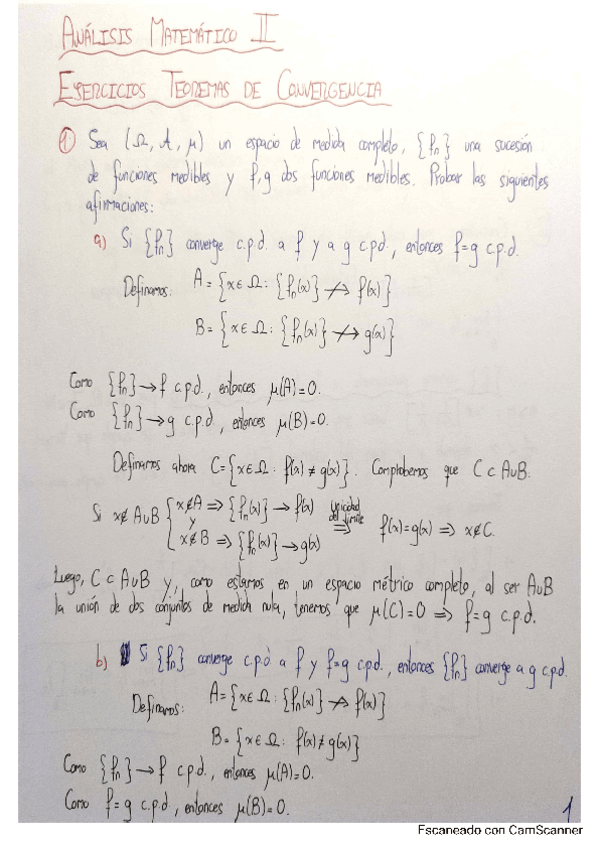 ANÁLISIS MATEMÁTICO II
EJERCICIOS TEOREMAS DE CONVERGENCIA
① Sea (Ω, A, μ) un espacio de medida completo, {fn} una sucesión
de funciones medibles y f,g dos funciones medibles. Probar las siguientes
afirmaciones:
a) Si {fn} converge c.p.d. a f y a g c.p.d., entonces f=g c.p.d.
Definamos: A = {x∈Ω: {fn(x)} ↛ f(x)}
B = {x∈Ω: {fn(x)} ↛ g(x)}
Como {fn}→f c.p.d., entonces μ(A)=0.
Como {fn}→g c.p.d., entonces μ(B)=0.
Definamos ahora C={x∈Ω: f(x)≠g(x)}. Comprobemos que C⊂A∪B.
Si x∉A∪B { x∉A ⇒ {fn(x)}→f(x) y x∉B ⇒ {fn(x)}→g(x) unicidad del límite ⇒ f(x)=g(x) ⇒ x∉C.
Luego, C⊂A∪B y, como estamos en un espacio métrico completo, al ser A∪B
la unión de dos conjuntos de medida nula, tenemos que μ(C)=0 ⇒ f=g c.p.d.
b) Si {fn} converge c.p.d a f y f=g c.p.d., entonces {fn} converge a g c.p.d.
Definamos: A={x∈Ω: {fn(x)} ↛ f(x)}
B={x∈Ω: f(x)≠g(x)}
Como {fn}→f c.p.d., entonces μ(A)=0.
Como f=g c.p.d., entonces μ(B)=0.
1
Escaneado con CamScanner